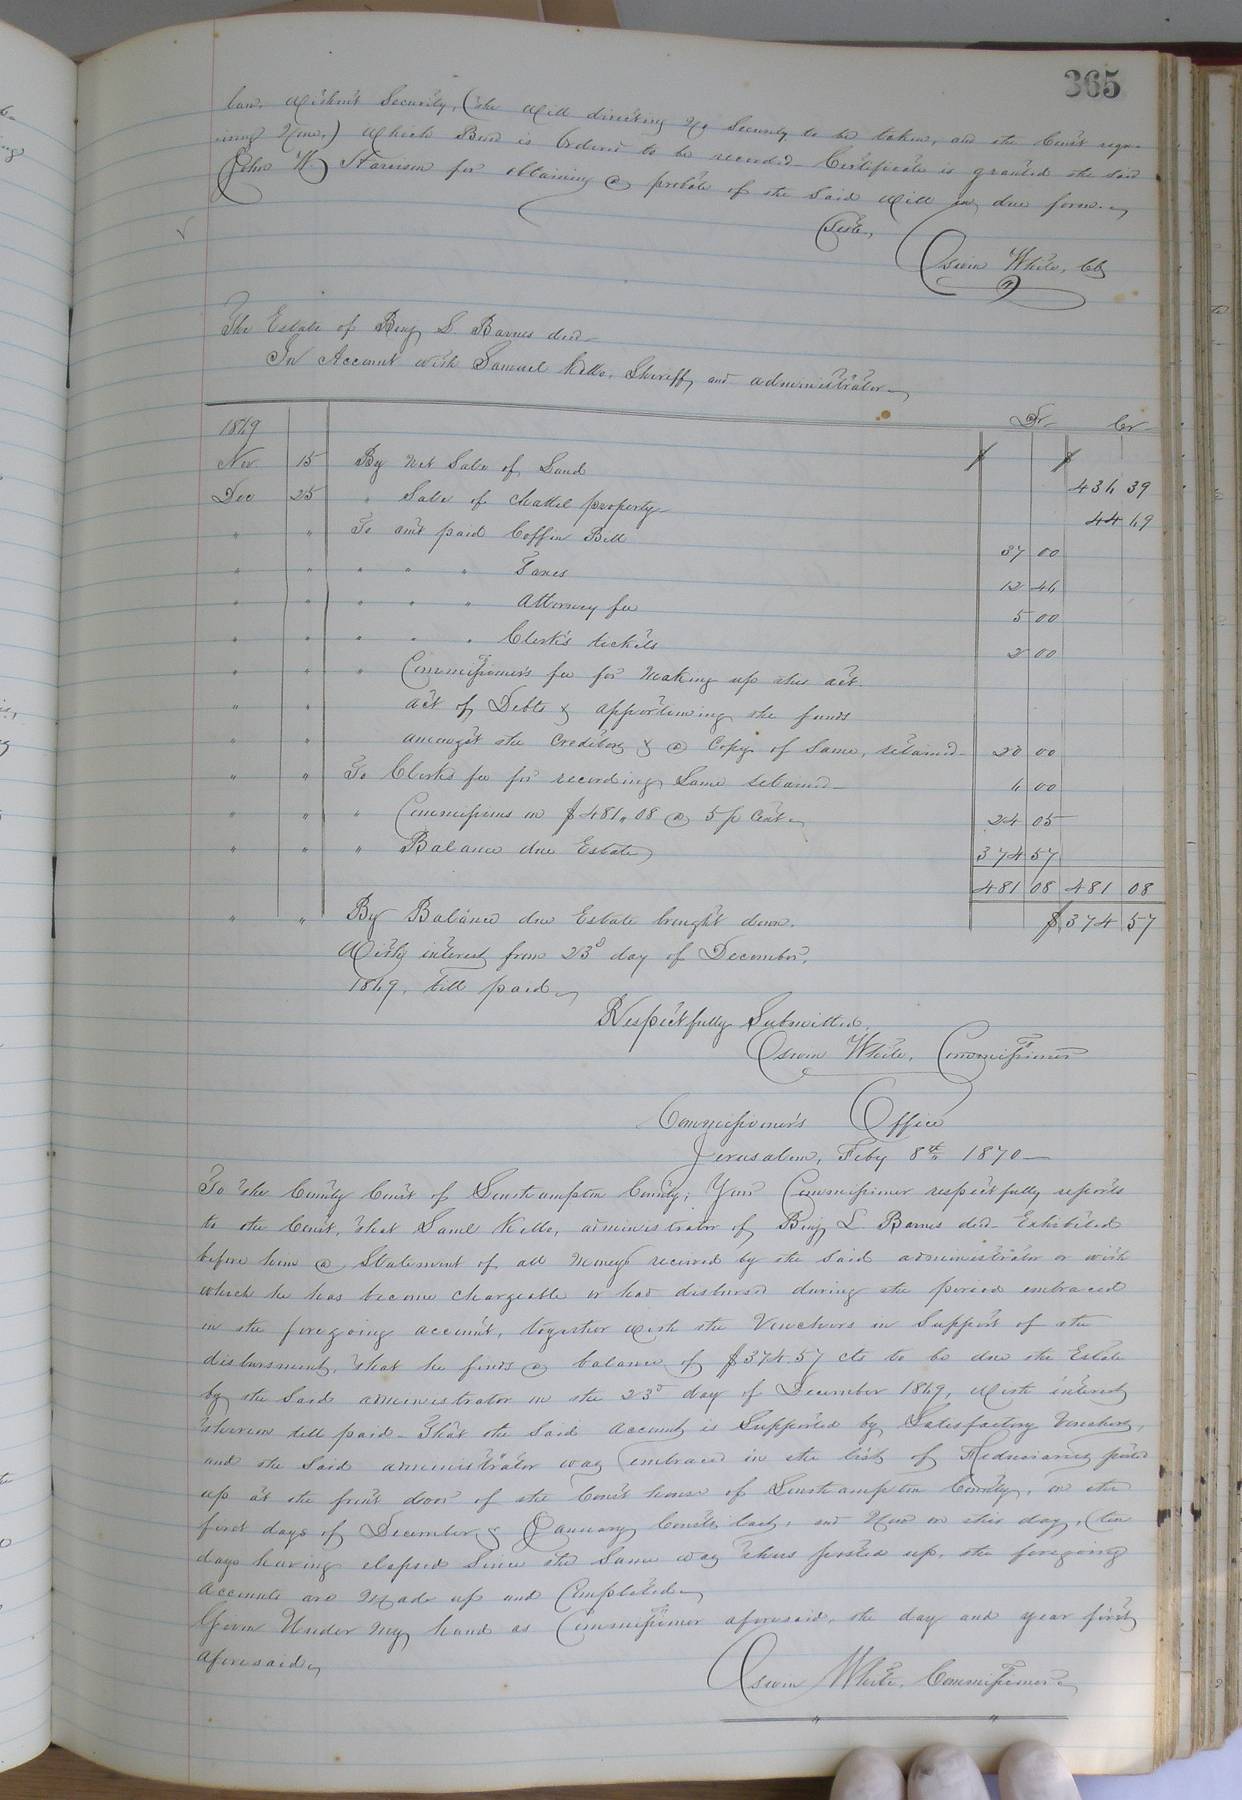 365
law. Without Security, (the Will directing no Security to be taken, and the Court requi-
iring None,) Which Bond is Ordered to be recorded. Certificate is granted the said
John W. Harrison for obtaining a probate of the Said Will in due form.
Teste,
Oswin White, Clk
The Estate of Benj L. Barnes decd
In Account with Samuel Kello, Sheriff, and administrator
Dr Cr
1869 $ $
Nov 15 By Net Sale of Land 436 39
Dec 25 " Sale of Chattel property 44 69
" " To amt paid Coffin Bill 37 00
" " " " " Taxes 12 46
" " " " " Attorney fee 5 00
" " " " " Clerk's tickets 2 00
" " " Commissioner's fee for Making up this act.
" " act of Debts & apportioning the funds
" " amongst the Creditors & a Copy of Same, retained 20 00
" " To Clerks fee for recording Same retained 6 00
" " " Commissions on $481.08 @ 5 p Cent. 24 05
" " " Balance due Estate 374 57
481 08 481 08
" " By Balance due Estate brought down. $374 57
With interest from 23d day of December,
1869, till paid
Respectfully Submitted.
Oswin White, Commissioner
Commissioner's Office
Jerusalem, Feby 8th 1870
To the County Court of Southampton County; Your Commissioner respectfully reports
to the Court, that Saml Kello, administrator of Benj L. Barnes decd Exhibited
before him a Statement of all Moneys received by the Said administrator or with
which he has become chargeable or had disbursed during the period embraced
in the foregoing account, together with the Vouchers in Support of the
disbursment, that he finds a balance of $374.57 cts to be due the Estate
by the Said administrator on the 23d day of December 1869, With interest
thereon till paid. That the Said Account is Supported by Satisfactory Vouchers,
and the Said administrator was embraced in the list of Fiduciaries posted
up at the front door of the Court house of Southampton County, on the
first days of December & January Courts last, and Now on this day, (ten
days having elapsed Since the Same was thus posted up, the foregoing
Accounts are Made up and Completed
Given Under My hand as Commissioner aforesaid, the day and year first
aforesaid
Oswin White, Commissioner